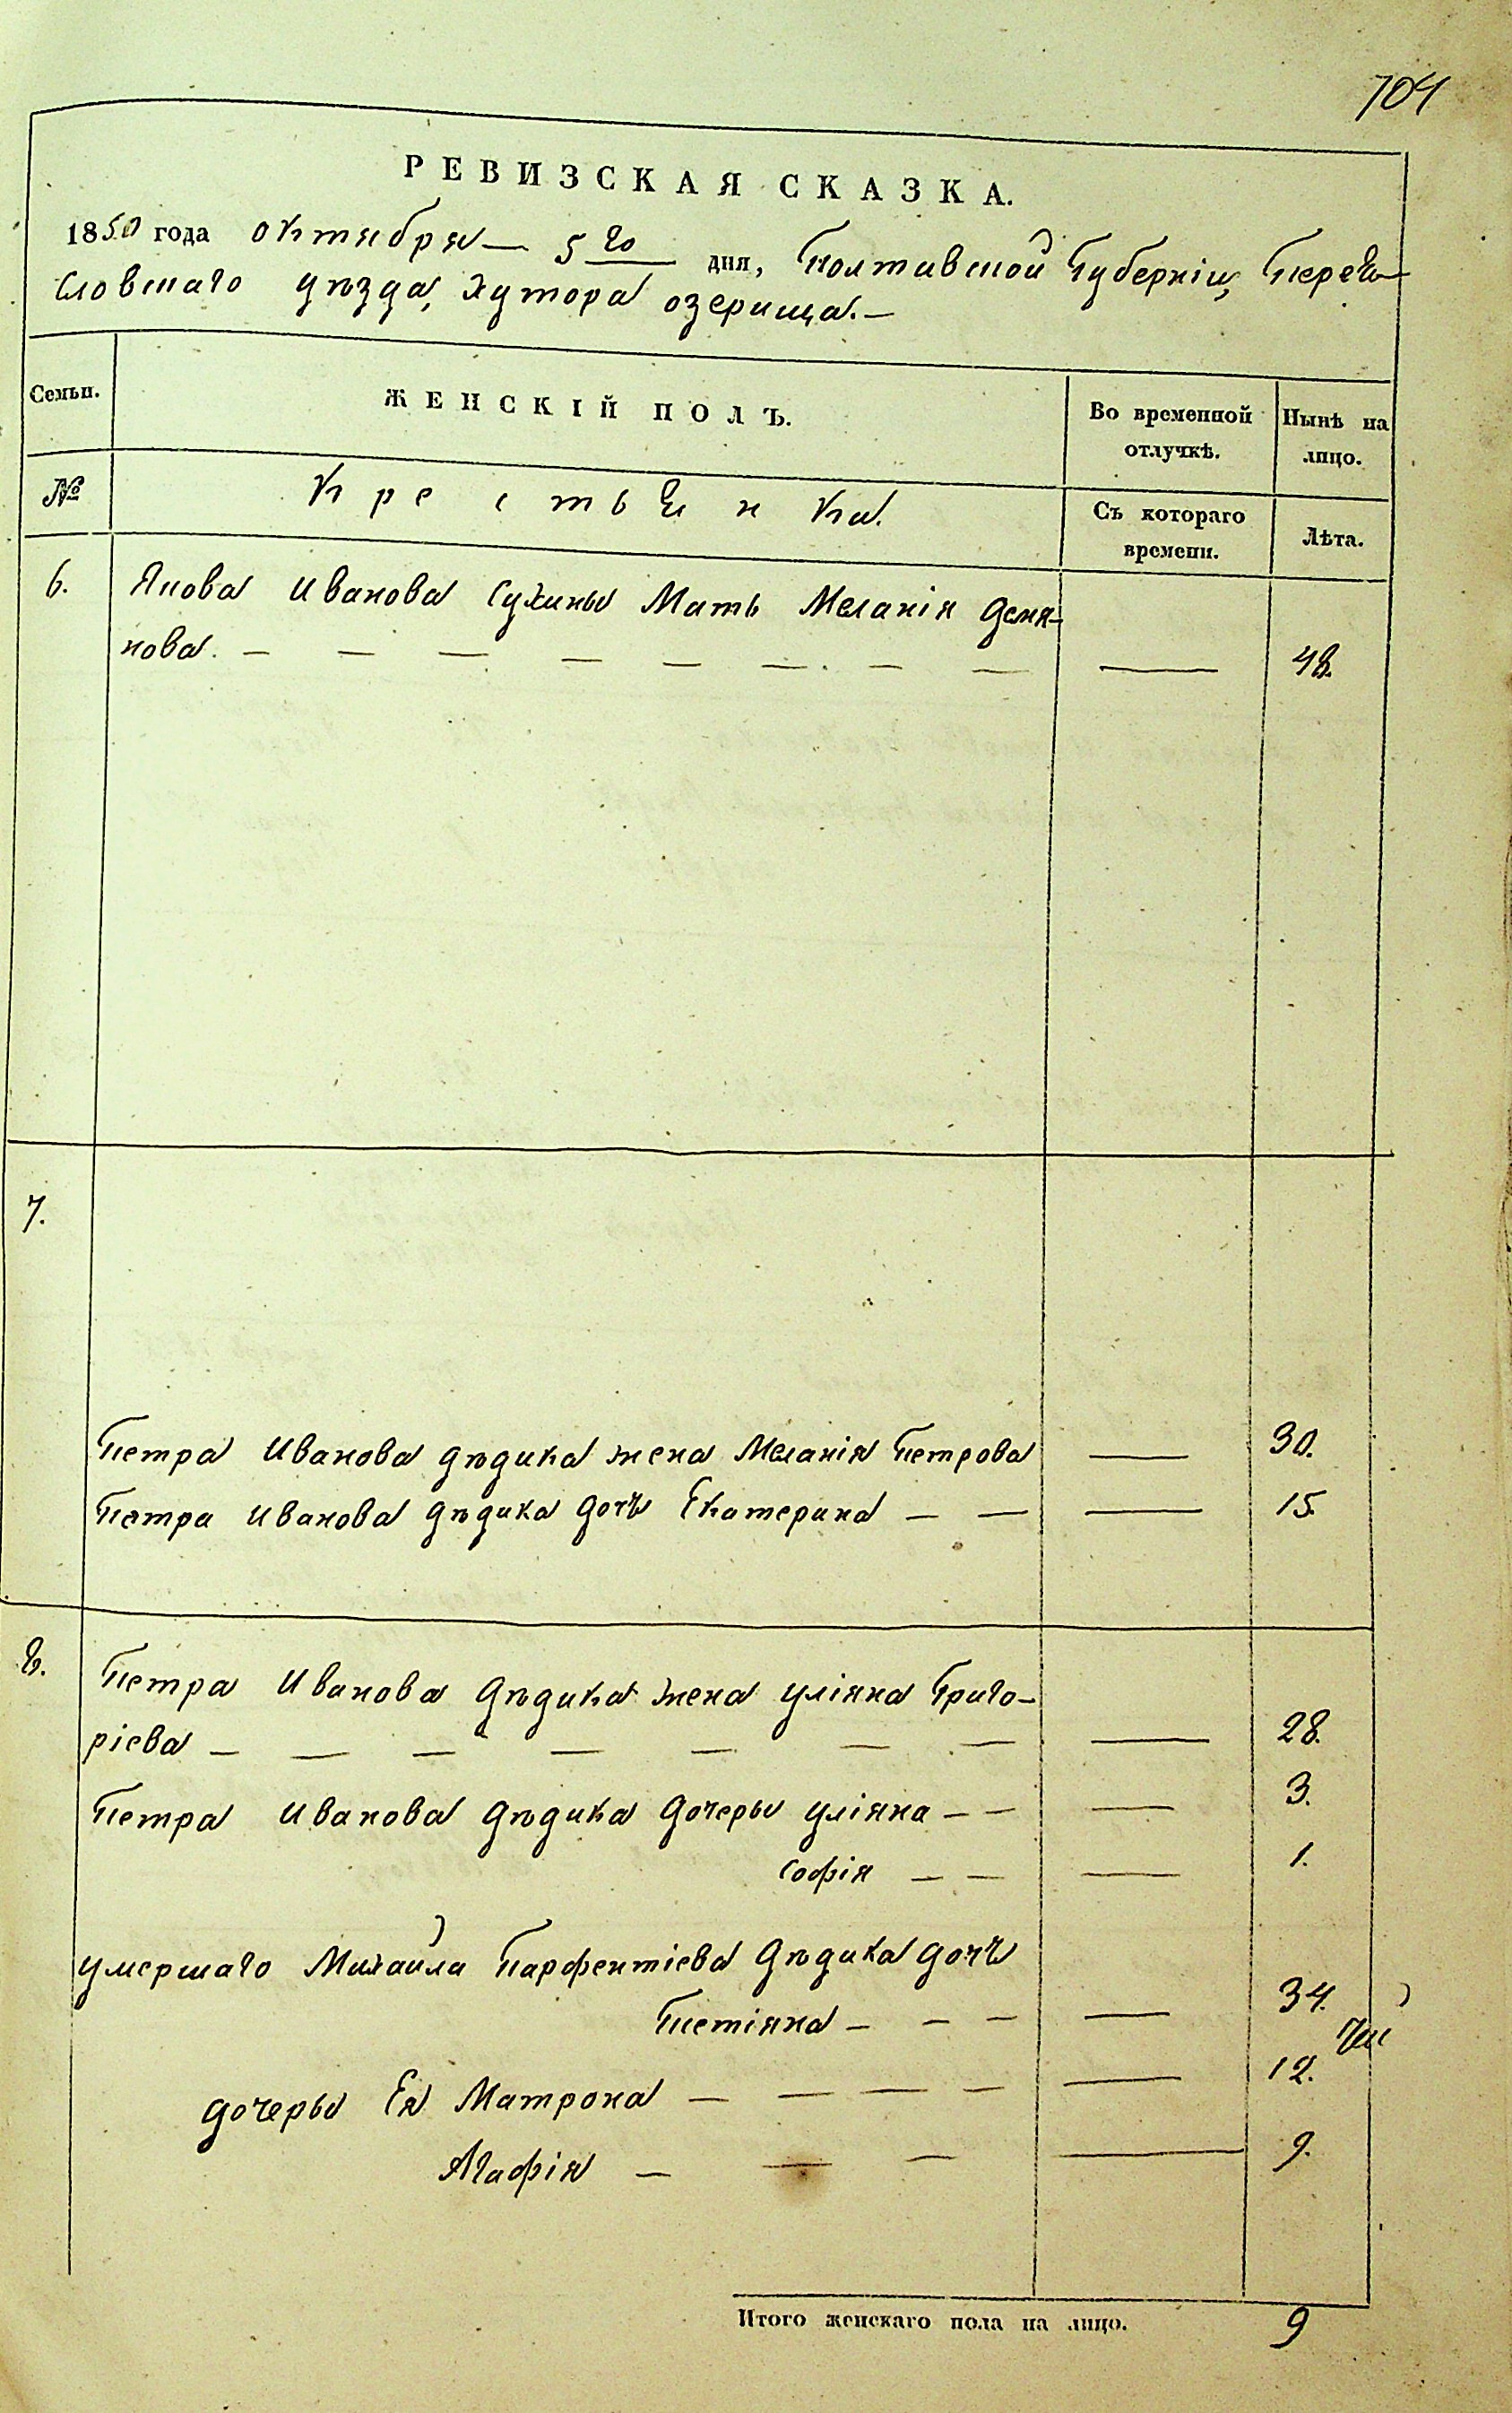 704
РЕВИЗСКАЯ СКАЗКА.
1850 года октября — 5го дня, Полтавской Губерніи, Перея-
словскаго уѣзда, Хутора озерища. —
Семьи.
ЖЕНСКІЙ ПОЛЪ.
Во временной отлучкѣ.
Нынѣ на лицо.
№
Крестьянка.
Съ котораго времени.
Лѣта.
6. Якова Иванова Сухины Мать Меланія Демя-
нова. — — — — — — — — — 48.
7.
Петра Иванова Дѣдика жена Меланія Петрова — 30.
Петра Иванова Дѣдика дочь Екатерина — — — 15.
8. Петра Иванова Дѣдика жена Уліяна Григо-
ріева — — — — — — — — 28.
Петра Иванова Дѣдика дочеры Уліяна — — — 3.
Софія — — — 1.
умершаго Михайла Парфентіева Дѣдика дочь
Тетіяна — — — — 34.
дочеры Ея Матрона — — — — — 12.
Агафія — — — — 9.
Итого женскаго пола на лицо. 9